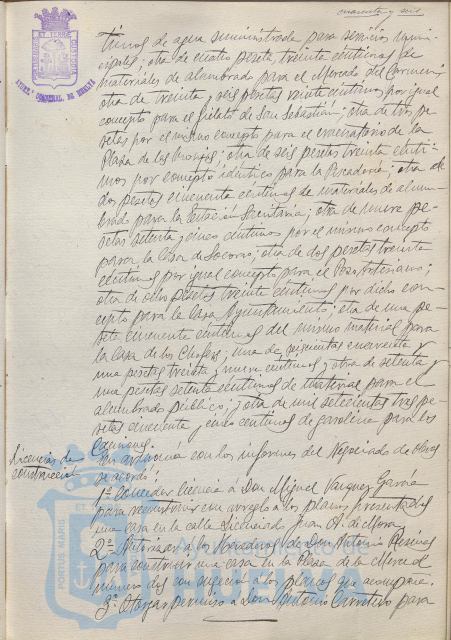 cuarenta y seis
timos de agua suministrada para servicios muni-
cipales; otra de cuatro pesetas treinta céntimos de
materiales de alumbrado para el Mercado del Carmen;
otra de treinta y seis pesetas veinte céntimos por igual
concepto para el Grupo de San Sebastián; otra de tres pe-
setas por el mismo concepto para el evacuatorio de la
Plaza de las Monjas; otra de seis pesetas treinta cénti-
mos por concepto idéntico para la Pescadería; otra de
dos pesetas cincuenta céntimos de materiales de alum-
brado para la Secretaría; otra de nueve pe-
setas setenta y cinco céntimos por el mismo concepto
para la Casa de Socorro; otra de dos pesetas treinta
céntimos por igual concepto para el
otra de ocho pesetas treinta céntimos por dicho con-
cepto para la Casa Ayuntamiento; otra de una pe-
seta cincuenta céntimos del mismo material para
la Casa de los; una de quinientas cuarenta y
una pesetas treinta y nueve céntimos y otra de setenta y
una pesetas setenta céntimos de material para el
alumbrado público; y otra de mil setecientas tres pe-
setas ochenta y cinco céntimos de gasolina para los
camiones.
Licencias de
construcción
En armonía con los informes del Negociado de Obras
se acordó:
1º Conceder licencia a Don Miguel Vazquez García
para reconstruir con arreglo a los planos presentados
una casa en la calle Licenciado Juan A. de Mora.
2º Autorizar a los Herederos de Don Antonio
para construir una casa en la Plaza de la Merced
número dos con sujeción a los planos que acompaña.
3º Otorgar permiso a Don Antonio Carretero para
AYUNTº CONSTITUCIONAL DE HUELVA
PORTUS MARIS ET TERRAE CUSTODIA
Ayuntamiento de
HUELVA